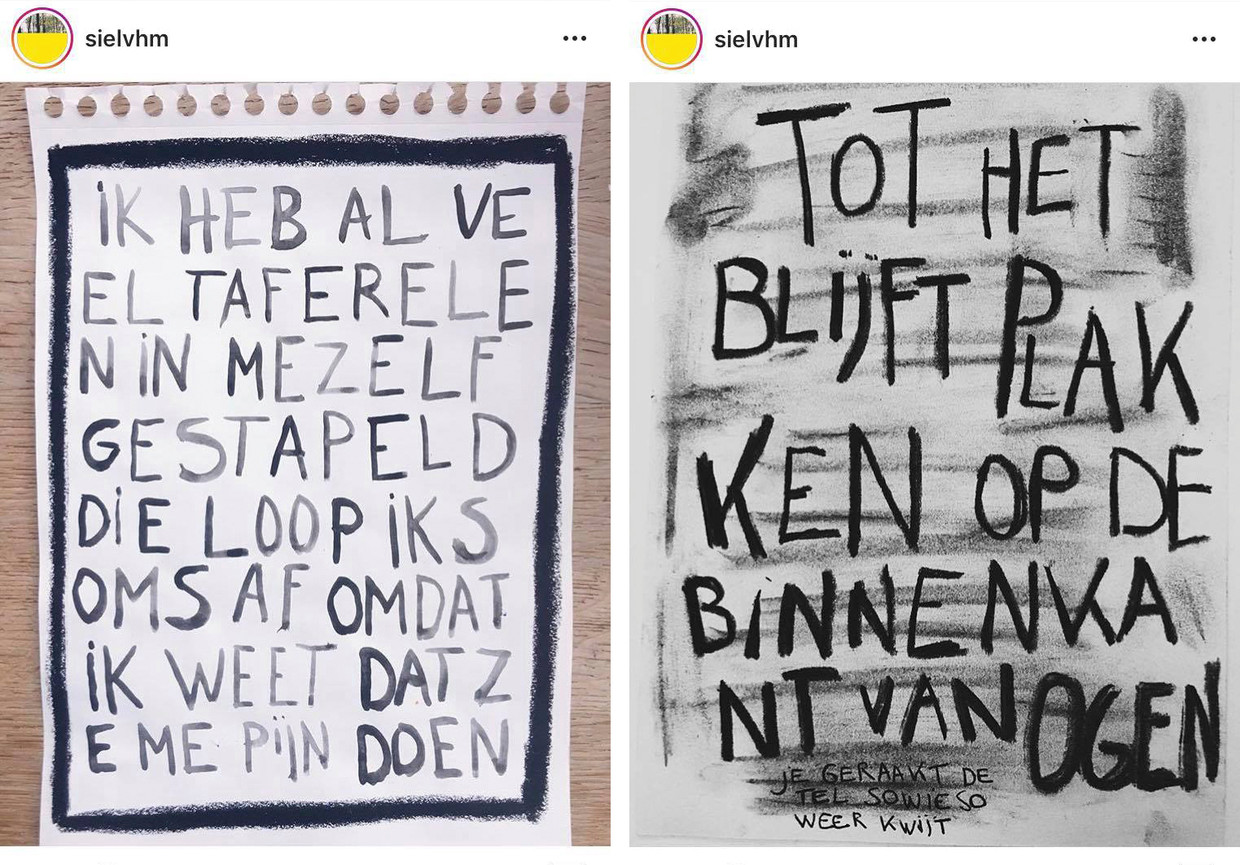 sielvhm
iK HEB AL VE
EL TAFERELE
N iN MEZELF
GESTAPELD
DiE LOOP iK S
OMS AF OMDAT
iK WEET DAT Z
E ME PijN DOEN
sielvhm
TOT HET
BLijFT PLAK
KEN OP DE
BiNNENKA
NT VAN OGEN
jE GERAAKT DE
TEL SOWiESO
WEER KWijT